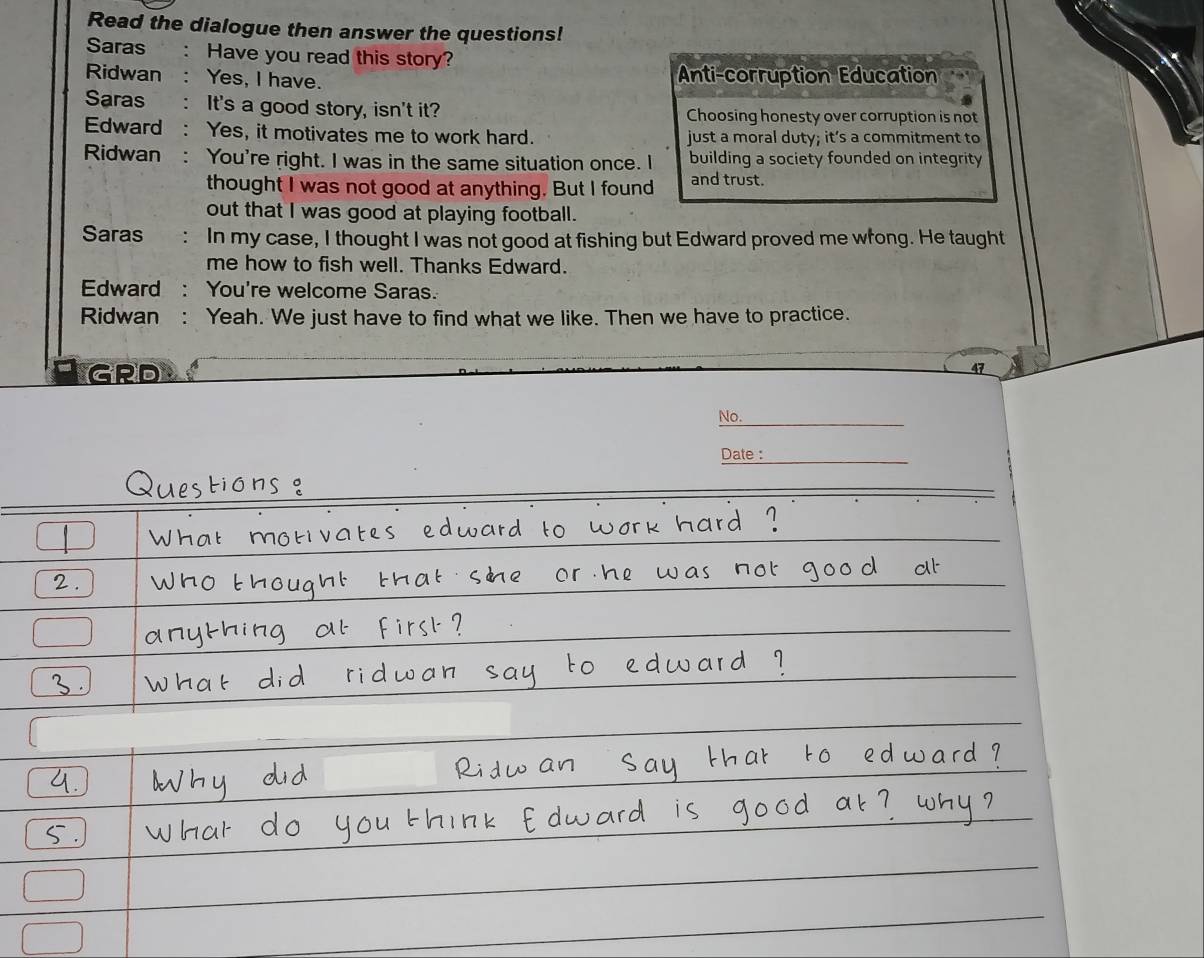 Read the dialogue then answer the questions!
Saras : Have you read this story?
Ridwan : Yes, I have.
Saras : It's a good story, isn't it?
Edward : Yes, it motivates me to work hard.
Ridwan : You're right. I was in the same situation once. I
thought I was not good at anything. But I found
out that I was good at playing football.
Saras : In my case, I thought I was not good at fishing but Edward proved me wrong. He taught
me how to fish well. Thanks Edward.
Edward : You're welcome Saras.
Ridwan : Yeah. We just have to find what we like. Then we have to practice.
Anti-corruption Education
Choosing honesty over corruption is not
just a moral duty; it's a commitment to
building a society founded on integrity
and trust.
GRD
47
No.
Date :
Questions :
1 What motivates edward to work hard ?
2. Who thought that she or he was not good at
anything at first ?
3. What did ridwan say to edward ?
4. Why did Ridwan say that to edward ?
5. What do you think Edward is good at ? why ?